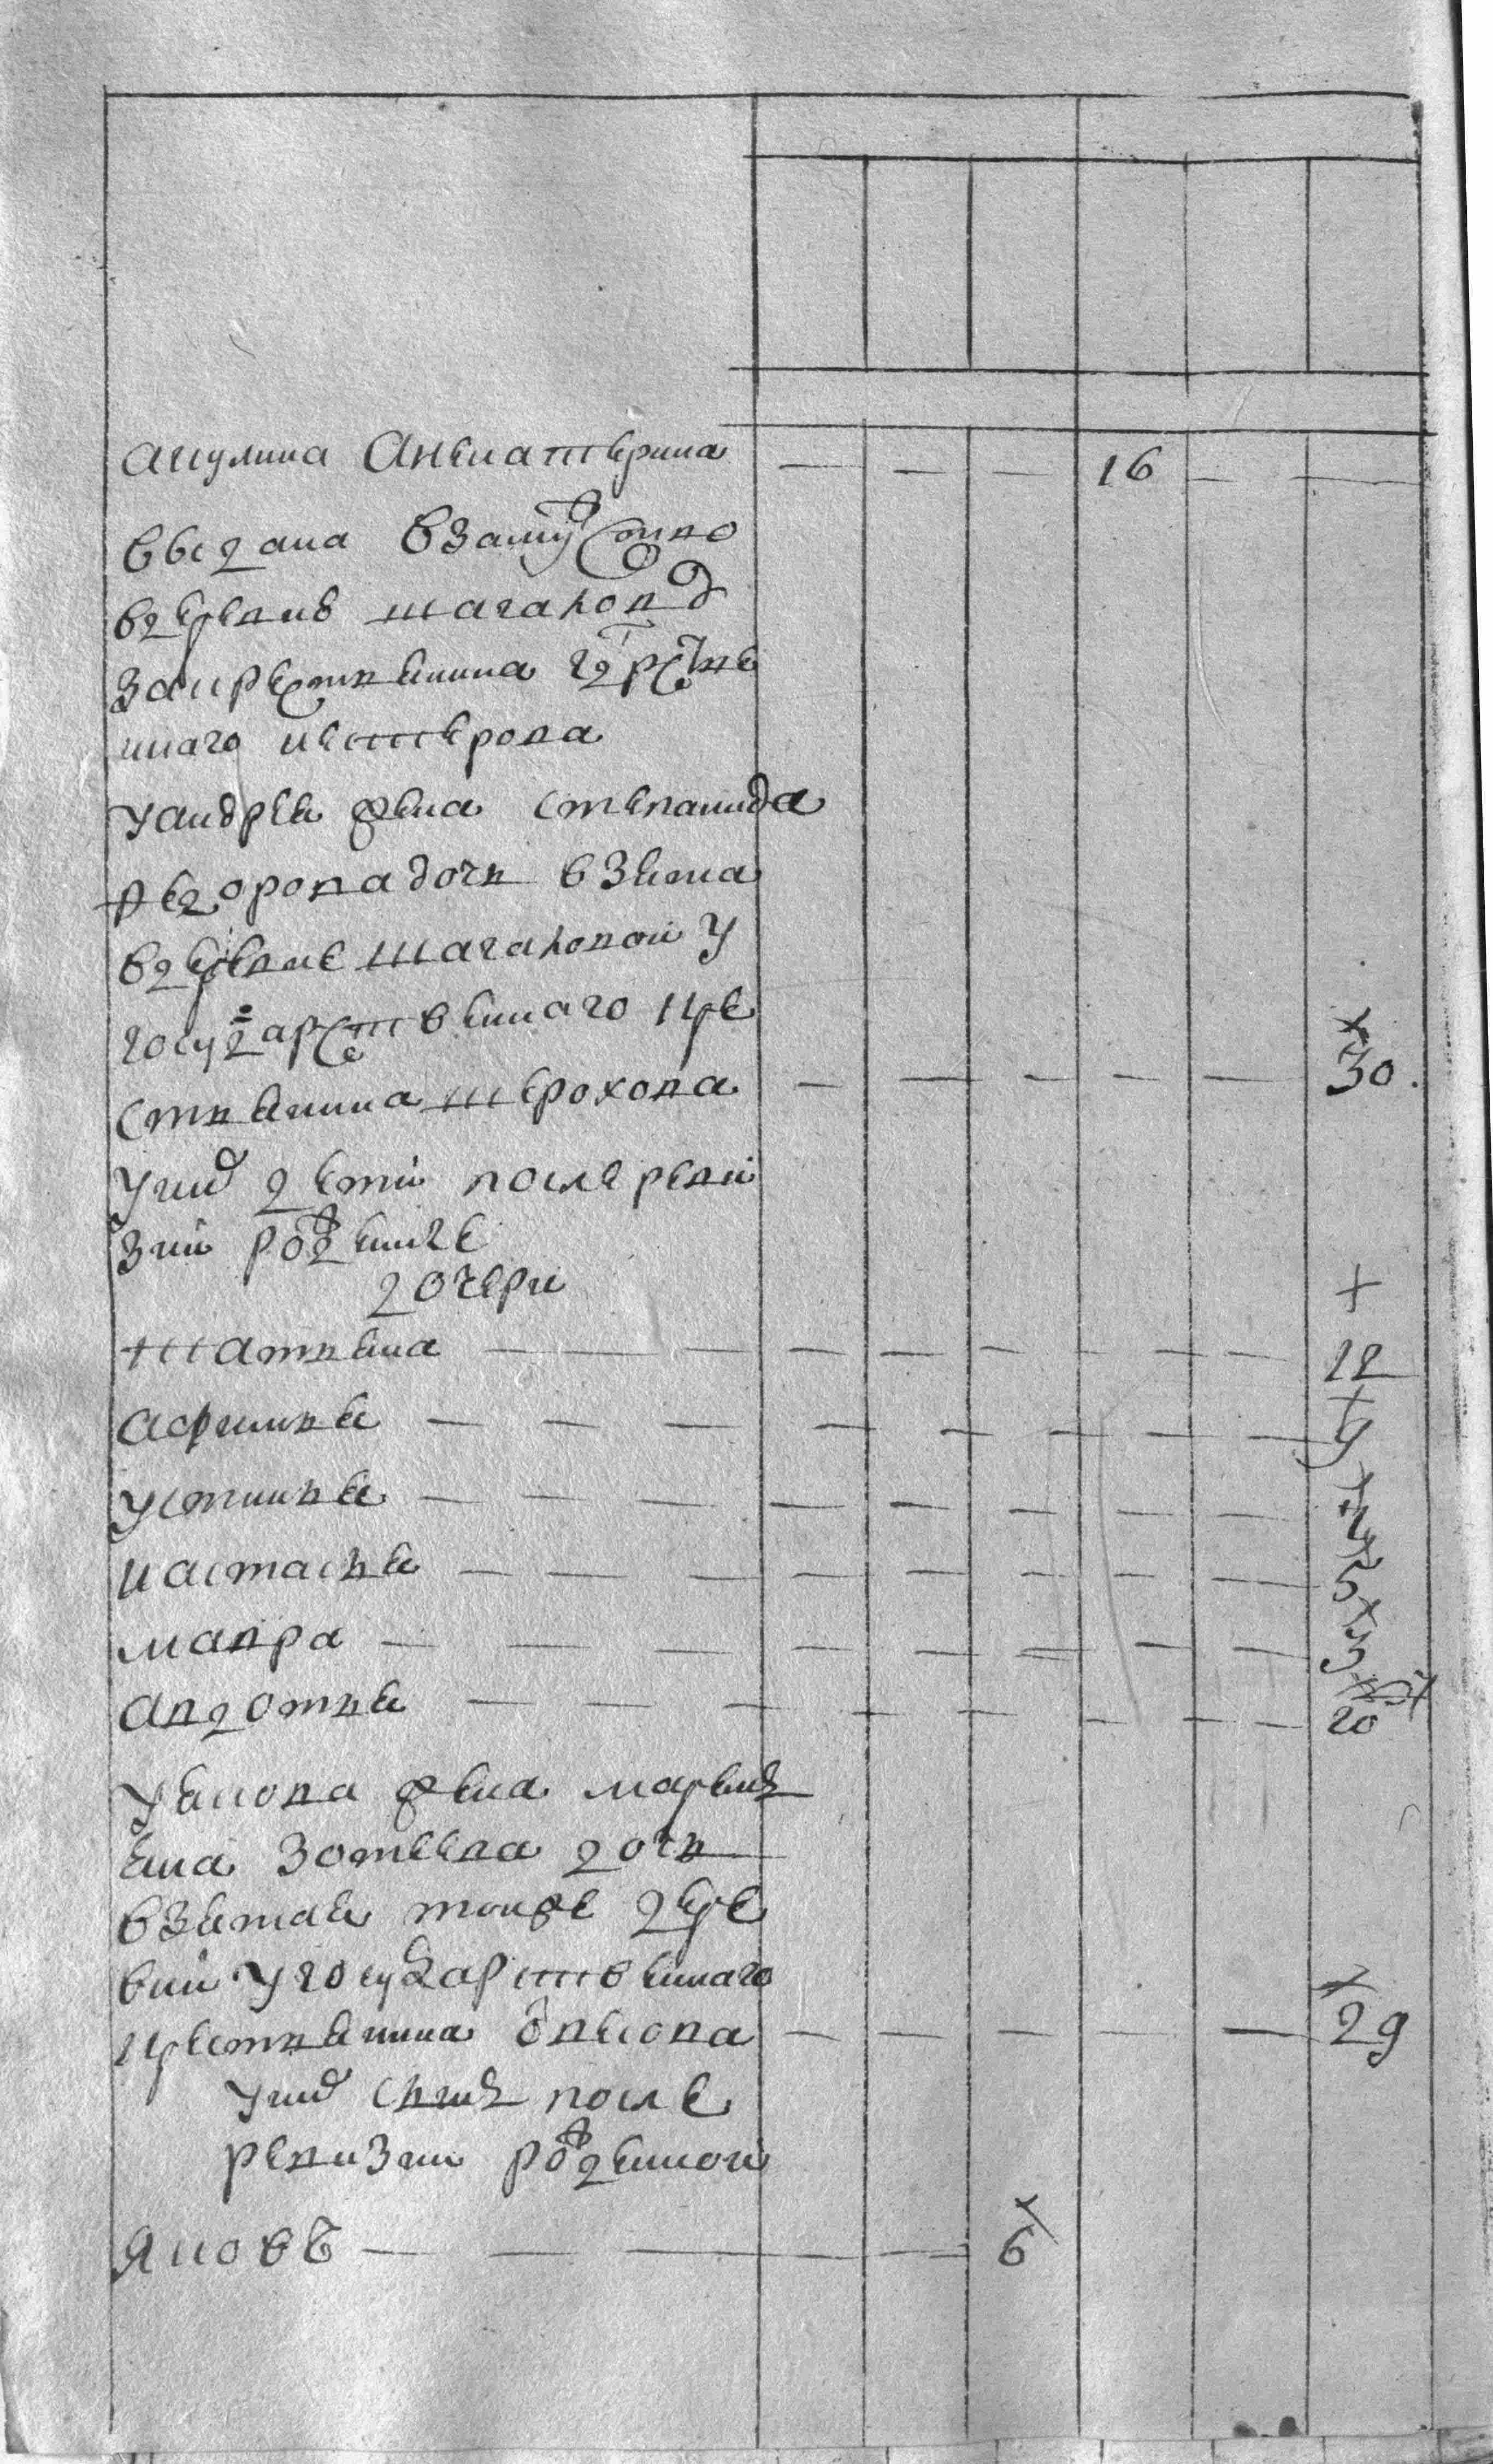 акулина Анекатерина — — — 16 — —
выдана взамужство
вдеревню шагалову
закрестьянина гдрстве
ннаго нестерова
Уандрея жена степанида
федорова дочь взята
вдеревне шагаловой у
государственнаго кре
стьянина шерохова — — — — — 30.
Уних детй после реви
зии рожденые
дочери
татьяна — — — 12
афимья — — — 9
устинья — — —
настасья — — — 5
мавра — — — 3
авдотья — — — 20
Уякова жена маремь
яна Зотеева дочь
взятая тоижъ дере
вни угосударственнаго
крестьянина — — — — — 29
Унихъ сынъ после
ревизии рожденной
Яковъ — — — 6